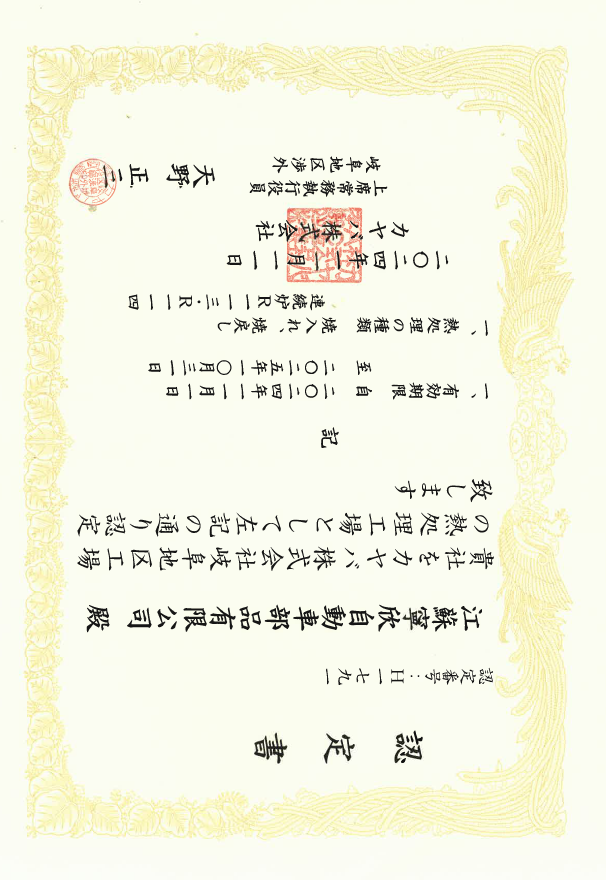 認定書
認定番号：H一七九一
江蘇寧欣自動車部品有限公司 殿
貴社をカヤバ株式会社岐阜地区工場
の熱処理工場として左記の通り認定
致します
記
一、有効期限 自 二〇二四年一一月一日
至 二〇二五年一〇月三一日
一、熱処理の種類 焼入れ、焼戻し
連続炉R一一三・R一一四
二〇二四年一一月一日
カヤバ株式会社
上席常務執行役員
岐阜地区渉外
天野 正三